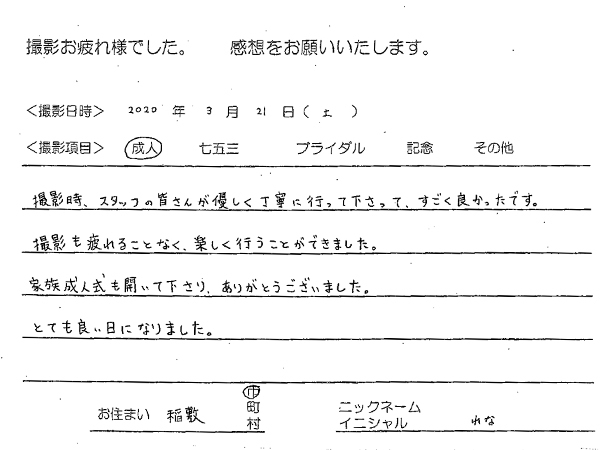 撮影お疲れ様でした。　感想をお願いいたします。
＜撮影日時＞ 2020 年 3 月 21 日（ 土 ）
＜撮影項目＞ 成人 七五三 ブライダル 記念 その他
撮影時、スタッフの皆さんが優しく丁寧に行って下さって、すごく良かったです。
撮影も疲れることなく、楽しく行うことができました。
家族成人式も開いて下さり、ありがとうございました。
とても良い日になりました。
お住まい 稲敷 市 町 村
ニックネーム イニシャル れな